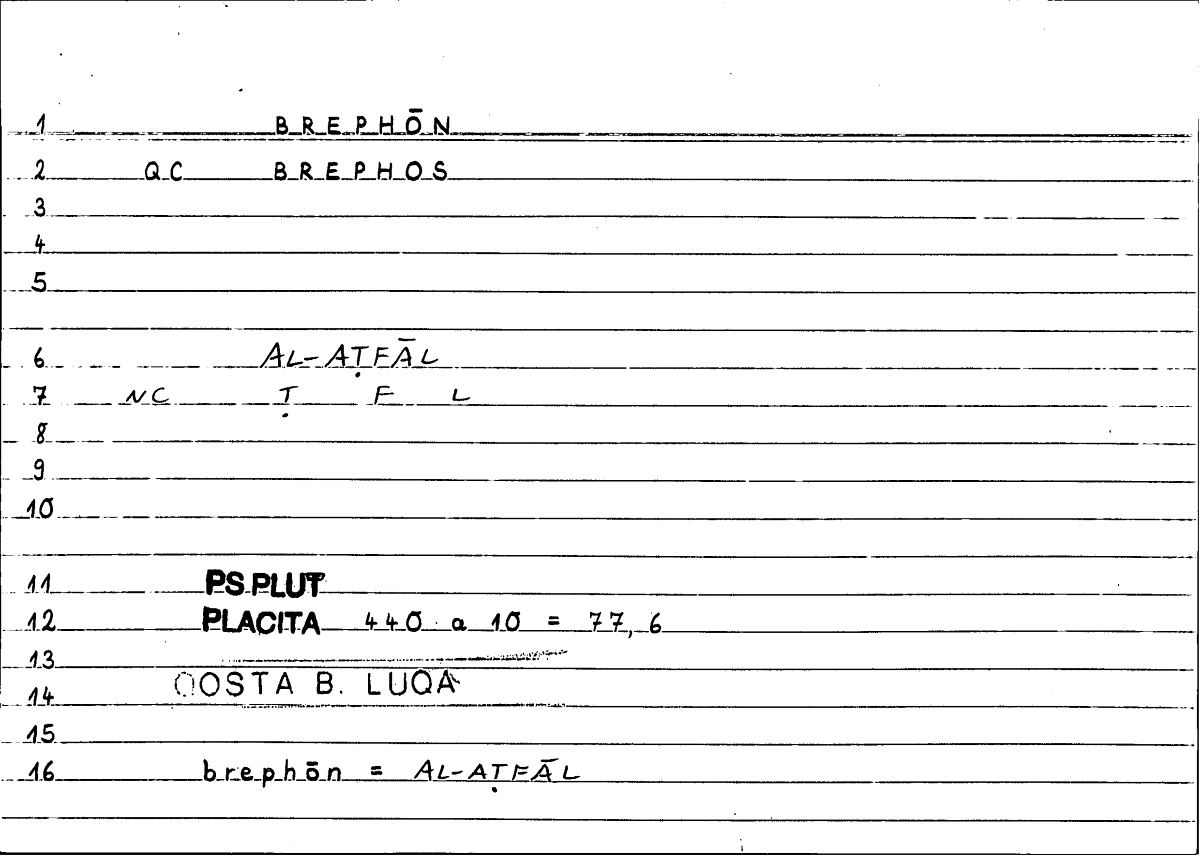 1 BREPHŌN
2 QC BREPHOS
3
4
5
6 AL-AṬFĀL
7 NC Ṭ F L
8
9
10
11 PS.PLUT
12 PLACITA 440 a 10 = 77,6
13
14 QOSTA B. LUQA
15
16 brephōn = AL-AṬFĀL